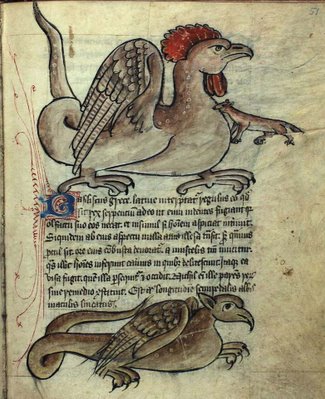 Basiliscus grece. latine interpretat regulus eo qd
sit rex serpentium adeo ut eum videntes fugiant quia
olfactu suo eos necat. et si hominem aspiciat interimit
Siquidem ab eius aspectu nulla avis illesa transit. quamvis
procul sit ore eius combusta devorat. a mustelis tamen vincitur
quas illic homines inferunt cavernis in quibus delitescunt itaque ea
visa fugit. quem illa persequit et occidit. nichil enim ille parens
sine remedio constituit. Est autem longitudine semipedalis albis
maculis lineatus.